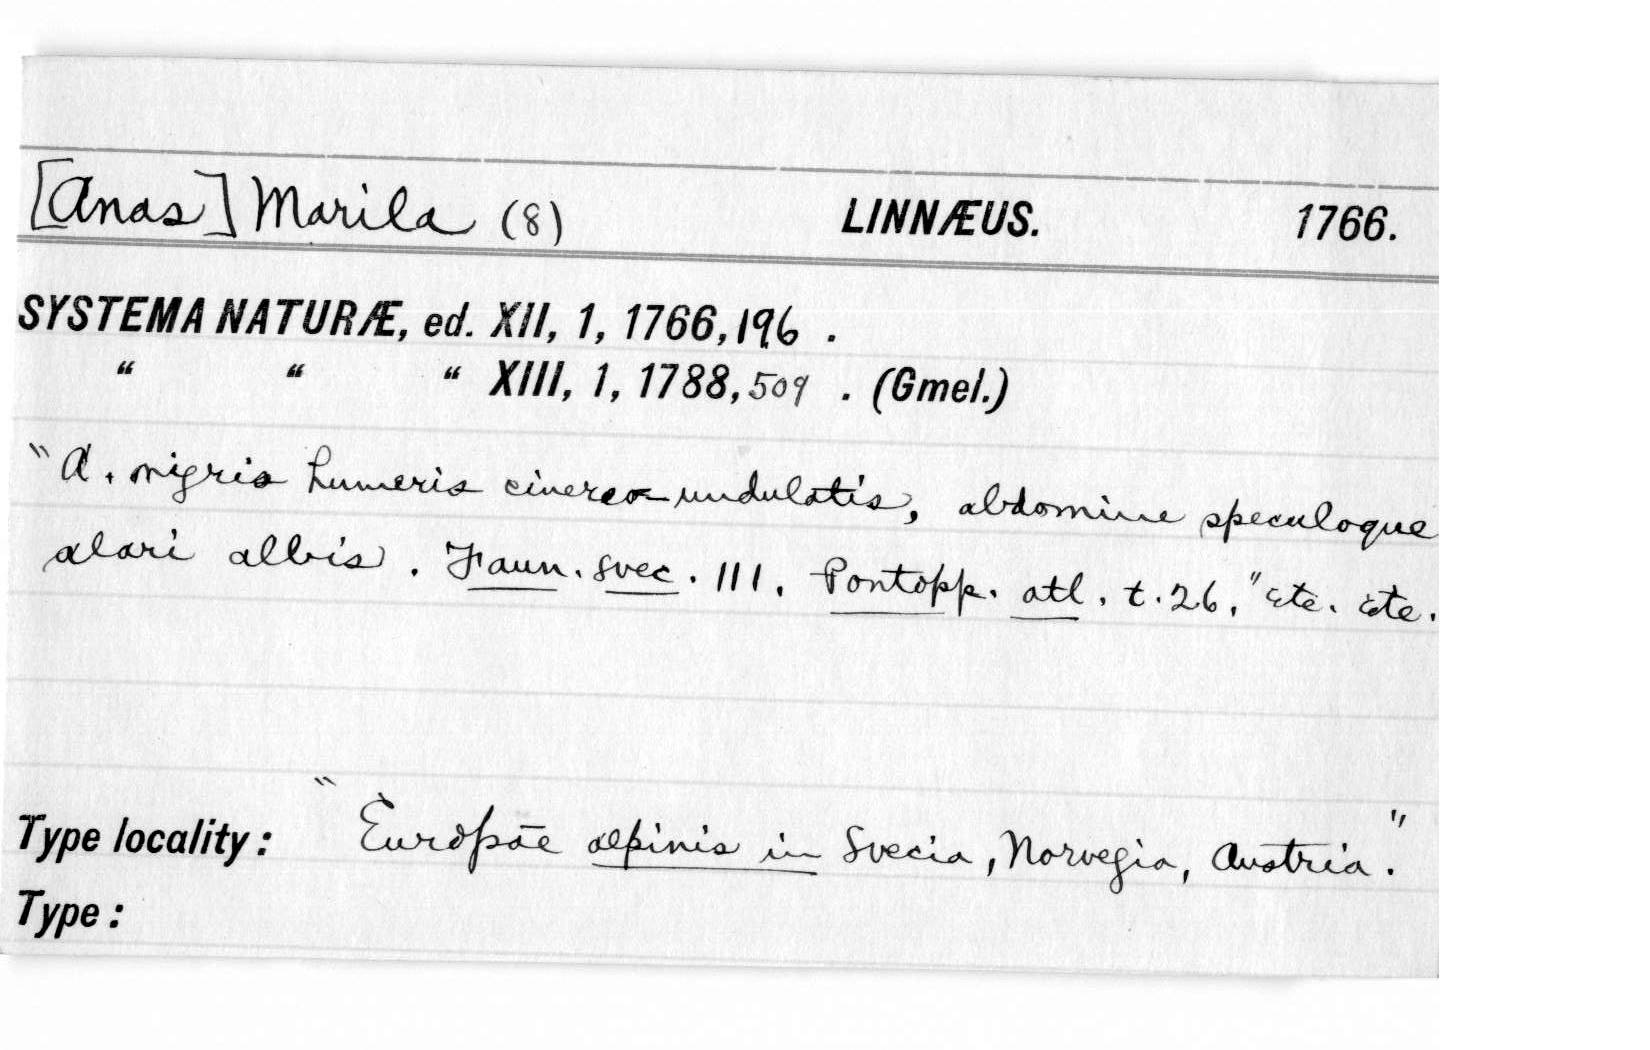 [Anas] Marila (8) LINNÆUS. 1766.
SYSTEMA NATURÆ, ed. XII, 1, 1766, 196 .
" " " XIII, 1, 1788, 509 . (Gmel.)
"A. nigris humeris cinereo undulatis, abdomine speculoque
alari albis. Faun. svec. 111. Pontopp. atl. t. 26." etc. etc.
Type locality: "Europae alpinis in Svecia, Norvegia, Austria."
Type: